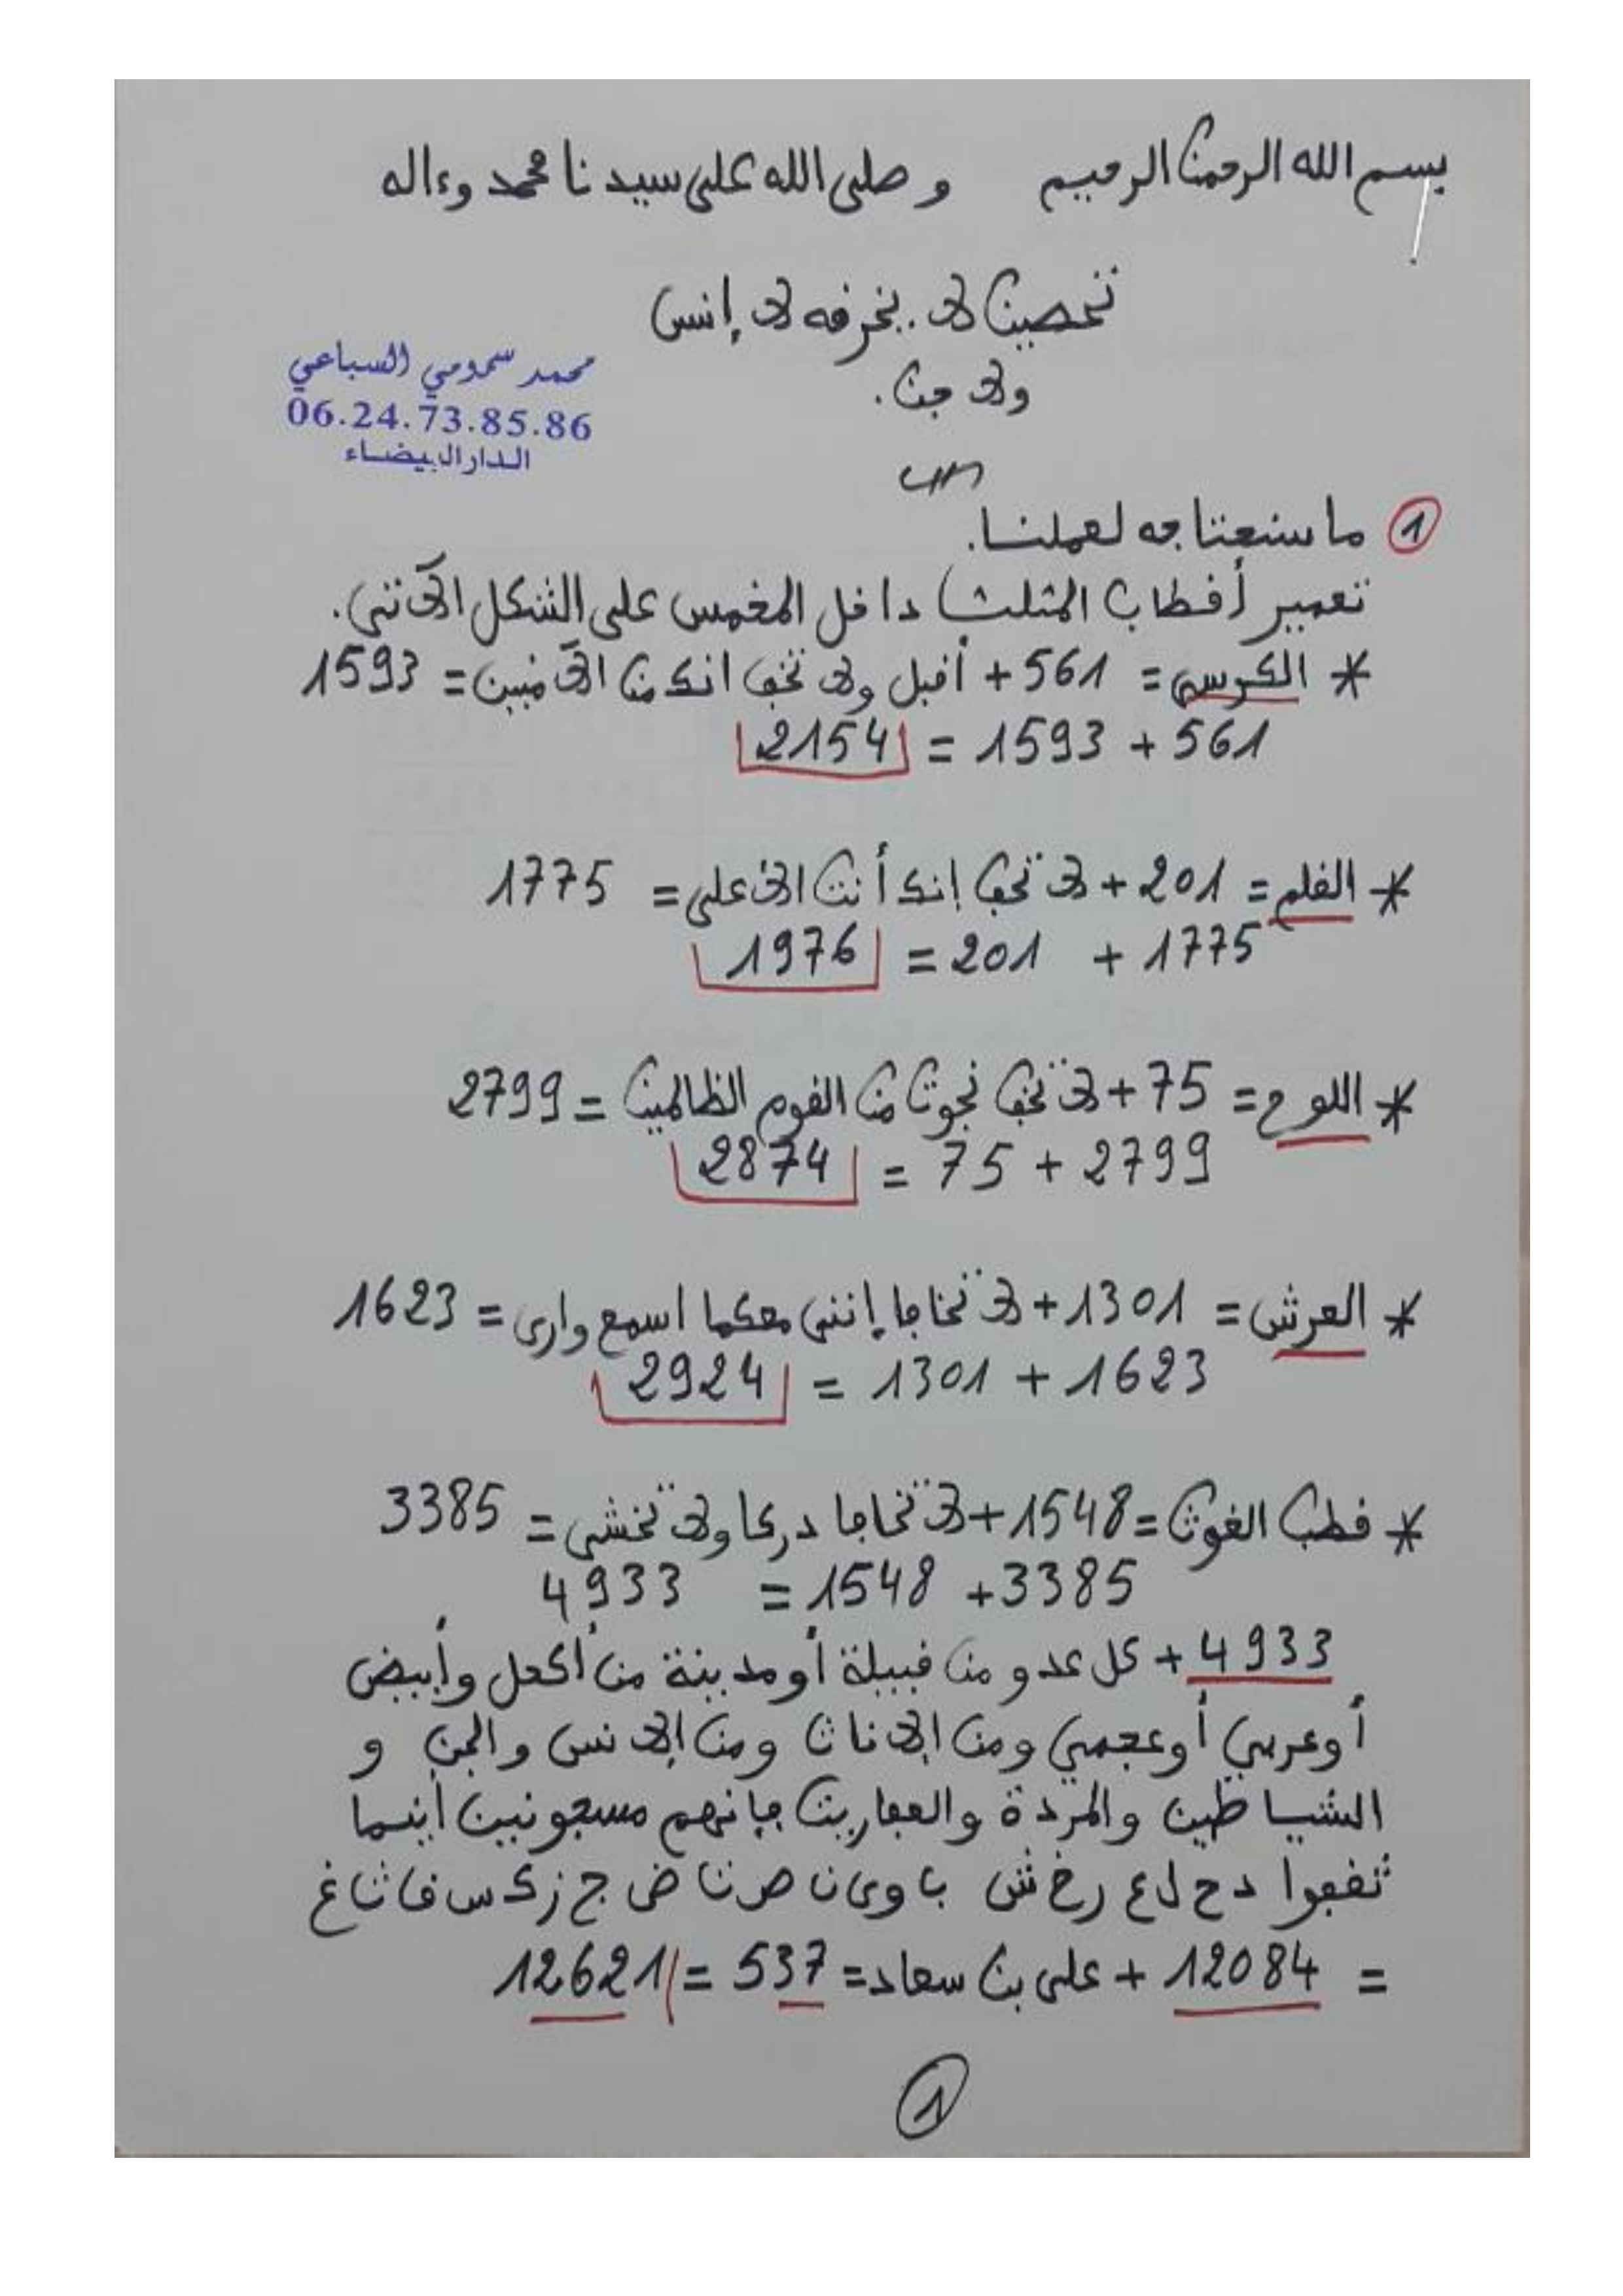 بسم الله الرحمن الرحيم وصلى الله على سيدنا محمد وءاله
تحصين لا يخرقه لا إنس
ولا جن.
محمد سمومي السباعي
06.24.73.85.86
الدار البيضاء
1 ما سنحتاجه لعملنا.
تعمير أقطاب المثلث داخل المخمس على الشكل الآتي.
* الكرسي = 561 + أقبل ولا تخف انك من الآمنين = 1593
561 + 1593 = 2154
* القلم = 201 + لا تخف إنك أنت الأعلى = 1775
1775 + 201 = 1976
* اللوح = 75 + لا تخف نجوت من القوم الظالمين = 2799
2799 + 75 = 2874
* العرش = 1301 + لا تخافا إنني معكما اسمع وارى = 1623
1623 + 1301 = 2924
* قطب الغوث = 1548 + لا تخاف دركا ولا تخشى = 3385
3385 + 1548 = 4933
4933 + كل عدو من قبيلة أو مدينة من أكحل وأبيض
أو عربي أو عجمي ومن الإناث ومن الإنس والجن و
الشياطين والمردة والعفاريت فإنهم مسجونين أينما
ثقفوا د ح ل ع ر خ ش ب ا و ى ن ص ت ض ج ز ك س ق ث غ
= 12084 + على بن سعاد = 537 = 12621
1